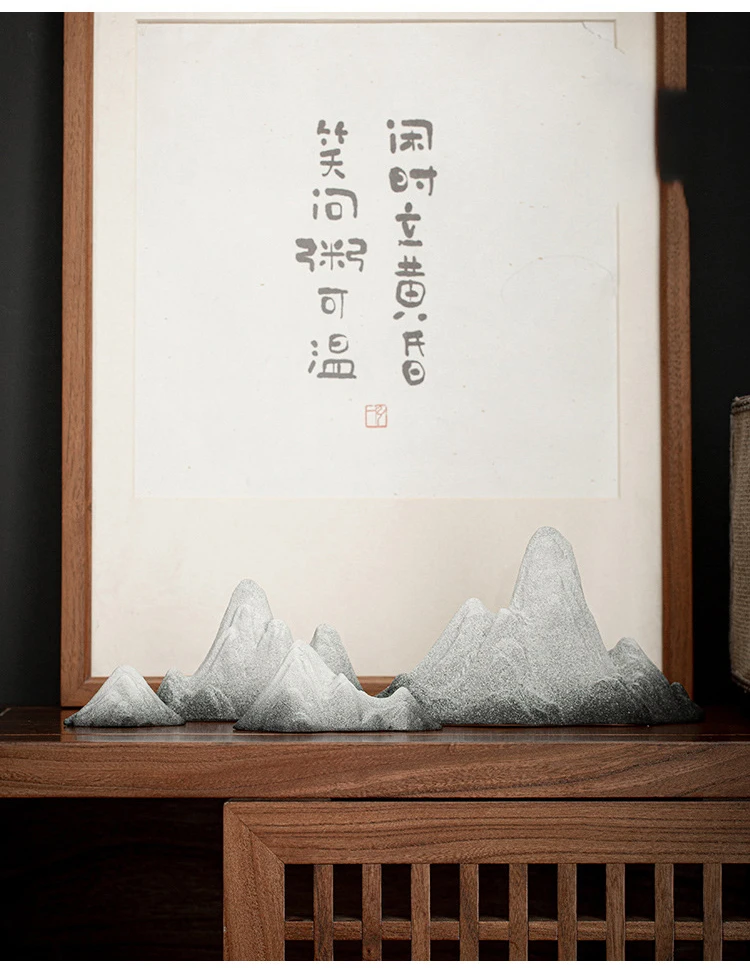 闲时立黄昏
笑问粥可温